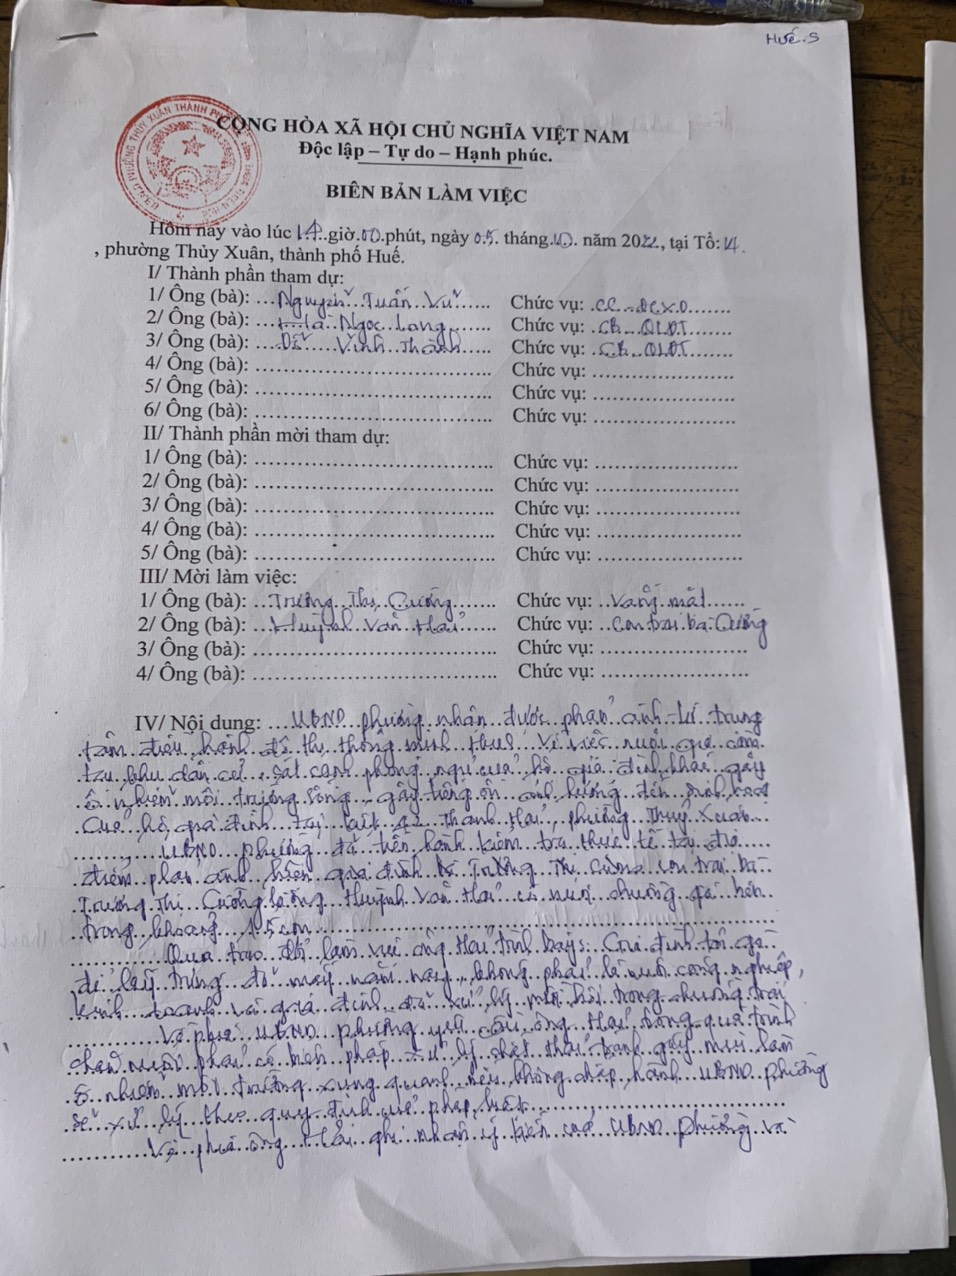 Huế.S
CỘNG HÒA XÃ HỘI CHỦ NGHĨA VIỆT NAM
Độc lập – Tự do – Hạnh phúc.
BIÊN BẢN LÀM VIỆC
Hôm nay vào lúc 14 giờ 00 phút, ngày 05 tháng 10 năm 2022, tại Tổ: 14
, phường Thủy Xuân, thành phố Huế.
I/ Thành phần tham dự:
1/ Ông (bà): Nguyễn Tuấn Vũ Chức vụ: CC-ĐCXD
2/ Ông (bà): Ngọc Long Chức vụ: CB QLĐT
3/ Ông (bà): Vĩnh Thành Chức vụ: CB QLĐT
4/ Ông (bà): Chức vụ:
5/ Ông (bà): Chức vụ:
6/ Ông (bà): Chức vụ:
II/ Thành phần mời tham dự:
1/ Ông (bà): Chức vụ:
2/ Ông (bà): Chức vụ:
3/ Ông (bà): Chức vụ:
4/ Ông (bà): Chức vụ:
5/ Ông (bà): Chức vụ:
III/ Mời làm việc:
1/ Ông (bà): Trương Thị Cường Chức vụ: Vắng mặt
2/ Ông (bà): Huỳnh Văn Hải Chức vụ: Con trai bà Cường
3/ Ông (bà): Chức vụ:
4/ Ông (bà): Chức vụ:
IV/ Nội dung: UBND phường nhận được phản ánh từ trung
tâm điều hành đô thị thông minh Huế về việc nuôi gia cầm
khu dân cư, sát cạnh phòng ngủ của hộ gia đình khác gây
ô nhiễm môi trường sống, gây tiếng ồn ảnh hưởng đến sinh hoạt
của hộ gia đình tại kiệt 42 Thanh Hải, phường Thủy Xuân
UBND phường đã tiến hành kiểm tra thực tế tại địa
điểm phản ánh hiện gia đình bà Trương Thị Cường con trai bà
Trương Thị Cường là ông Huỳnh Văn Hải có nuôi chuồng gà
trong khoảng 1.5
Qua trao đổi làm việc ông Hải trình bày: Gia đình tôi gà
để lấy trứng đã mấy năm nay, không phải là nuôi công nghiệp,
kinh doanh và gia đình đã xử lý mùi hôi trong chuồng trại
Về phía UBND phường yêu cầu ông Hải trong quá trình
chăn nuôi phải có biện pháp xử lý chất thải tránh gây mùi làm
ô nhiễm môi trường xung quanh nếu không chấp hành UBND phường
sẽ xử lý theo quy định của pháp luật
Về phía ông Hải ghi nhận ý kiến của UBND phường và